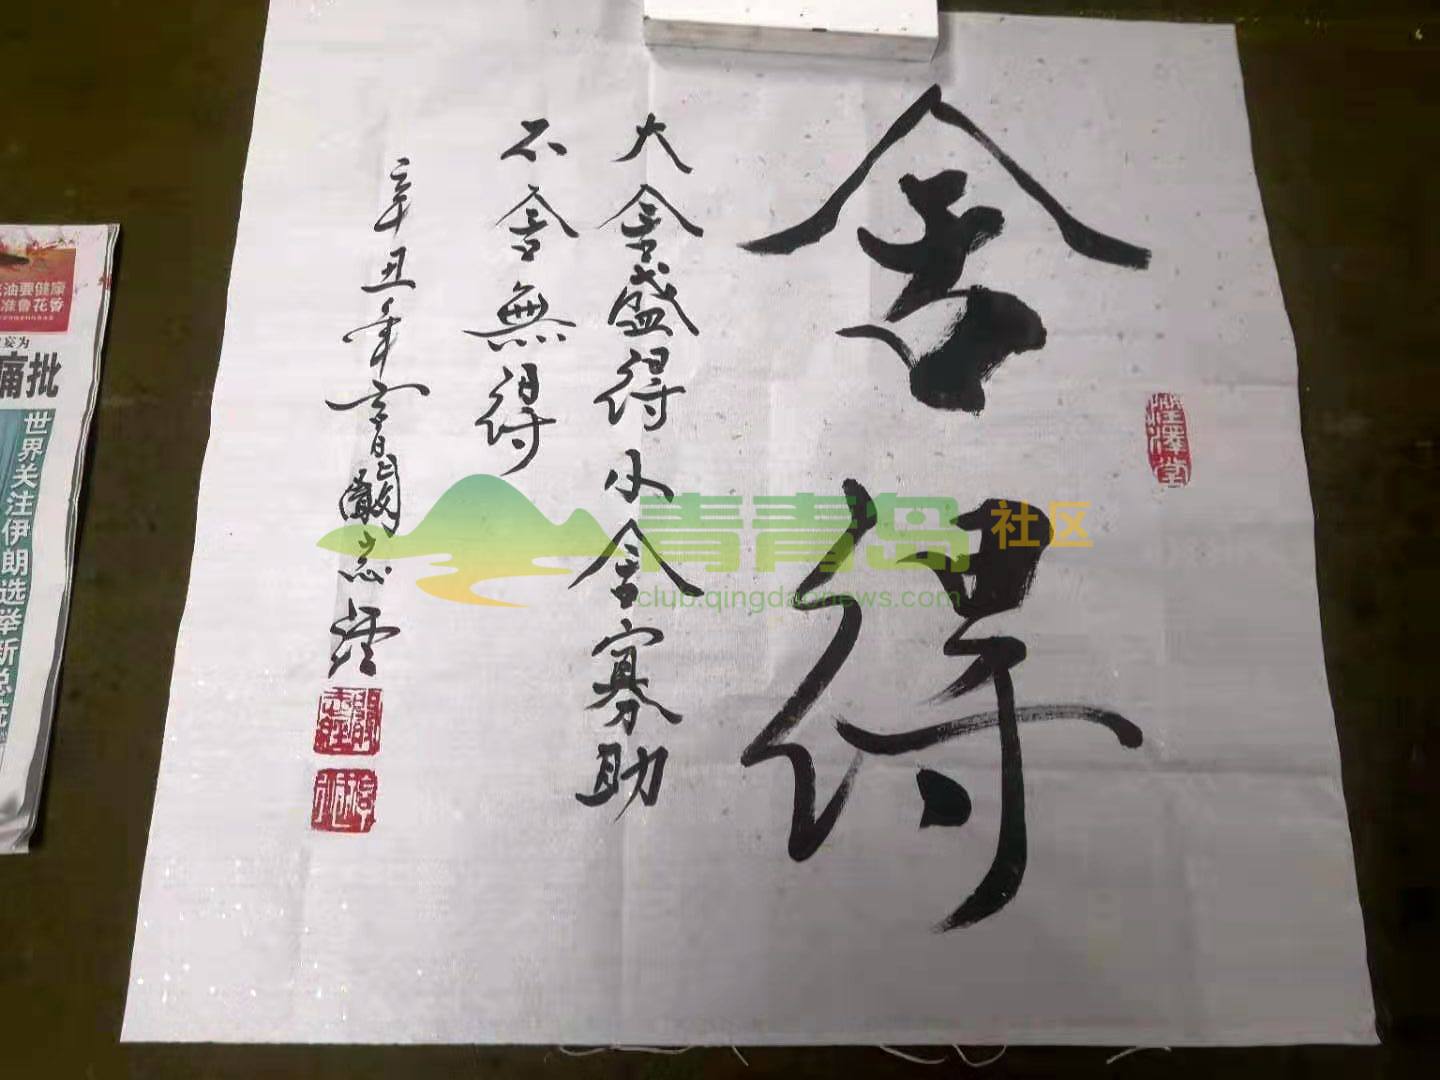 舍得
大舍盛得小舍寡助
不舍無得
辛丑年
青青岛社区
club.qingdaonews.com
痛批
世界关注伊朗选举新总统